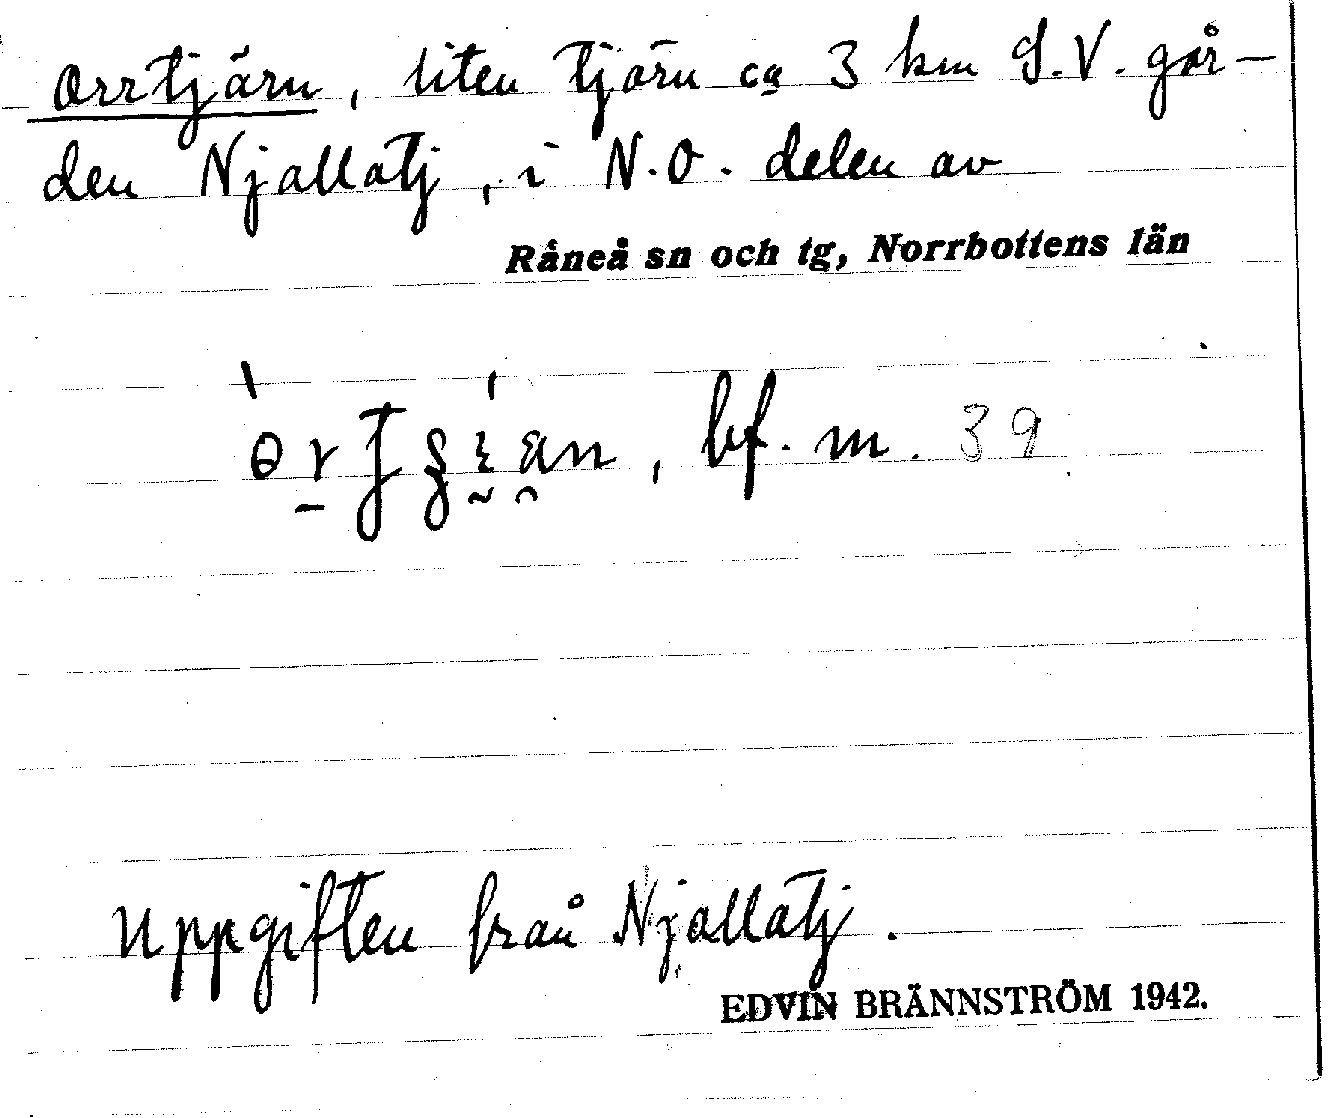 Orrtjärn, liten tjärn ca 3 km S.V. går-
den Njallatj, i N.O. delen av
Råneå sn och tg, Norrbottens län
bf. m. 39
Uppgiften från Njallatj.
EDVIN BRÄNNSTRÖM 1942.